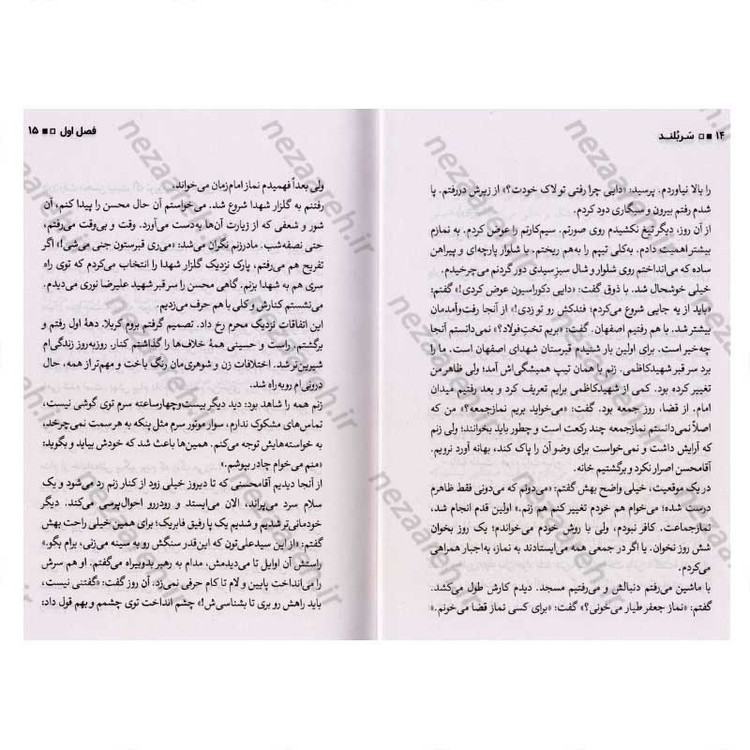 ۱۴ سَربُلند
را بالا نیاوردم. پرسید: «دایی چرا رفتی تو لاک خودت؟» از زیرش دررفتم. پا
شدم رفتم بیرون و سیگاری دود کردم.
از آن روز، دیگر تیغ نکشیدم روی صورتم. سیم‌کارتم را عوض کردم. به نمازم
بیشتر اهمیت دادم. به‌کلی تیپم را به‌هم ریختم. با شلوار پارچه‌ای و پیراهن
ساده که می‌انداختم روی شلوار و شال سبز سیدی دور گردنم می‌چرخیدم.
خیلی خوشحال شد. با ذوق گفت: «دایی دکوراسیون عوض کردی!» گفتم:
«باید از یه جایی شروع می‌کردم؛ فندکش رو تو زدی!» از آنجا رفت‌وآمدمان
بیشتر شد. با هم رفتیم اصفهان. گفت: «بریم تخت‌فولاد؟» نمی‌دانستم آنجا
چه‌خبر است. برای اولین بار شنیدم قبرستان شهدای اصفهان است. ما را
برد سر قبر شهیدکاظمی. زنم با همان تیپ همیشگی‌اش آمد؛ ولی ظاهر من
تغییر کرده بود. کمی از شهیدکاظمی برایم تعریف کرد و بعد رفتیم میدان
امام. از قضا، روز جمعه بود. گفت: «می‌خواید بریم نمازجمعه؟» من که
اصلاً نمی‌دانستم نمازجمعه چند رکعت است و چطور باید بخوانند؛ ولی زنم
که آرایش داشت و نمی‌خواست برای وضو آن را پاک کند، بهانه آورد نرویم.
آقامحسن اصرار نکرد و برگشتیم خانه.
در یک موقعیت، خیلی واضح بهش گفتم: «می‌دونم که می‌دونی فقط ظاهرم
درست شده؛ می‌خوام هم خودم تغییر کنم هم زنم.» اولین قدم انجام شد،
نمازجماعت. کافر نبودم، ولی با روش خودم می‌خواندم؛ یک روز بخوان
شش روز نخوان. یا اگر در جمعی همه می‌ایستادند به نماز، به‌اجبار همراهی
می‌کردم.
با ماشین می‌رفتم دنبالش و می‌رفتیم مسجد. دیدم کارش طول می‌کشد.
گفتم: «نماز جعفر طیار می‌خونی؟» گفت: «برای کسی نماز قضا می‌خونم.»
فصل اول ۱۵
ولی بعداً فهمیدم نماز امام‌زمان می‌خواند.
رفتنم به گلزار شهدا شروع شد. می‌خواستم آن حال محسن را پیدا کنم، آن
شور و شعفی که از زیارت آن‌ها به‌دست می‌آورد. وقت و بی‌وقت می‌رفتم،
حتی نصفه‌شب. مادرزنم نگران می‌شد: «می‌ری قبرستون جنی می‌شی!» اگر
تفریح هم می‌رفتم، پارک نزدیک گلزار شهدا را انتخاب می‌کردم که توی راه
سری هم به شهدا بزنم. گاهی محسن را سر قبر شهید علیرضا نوری می‌دیدم.
می‌نشستم کنارش و کلی با هم حرف می‌زدیم.
این اتفاقات نزدیک محرم رخ داد. تصمیم گرفتم بروم کربلا. دههٔ اول رفتم و
برگشتم. راست و حسینی همهٔ خلاف‌ها را گذاشتم کنار. روزبه‌روز زندگی‌ام
شیرین‌تر شد. اختلافات زن و شوهری‌مان رنگ باخت و مهم‌تر از همه، حال
درونی‌ام روبه‌راه شد.
زنم همه را شاهد بود: دید دیگر بیست‌وچهارساعته سرم توی گوشی نیست،
تماس‌های مشکوک ندارم، سوار موتور سرم مثل پنکه به هر سمت نمی‌چرخد،
به خواسته‌هایش توجه می‌کنم. همین‌ها باعث شد که خودش بیاید و بگوید:
«منم می‌خوام چادر بپوشم.»
از آنجا دیدیم آقامحسنی که تا دیروز خیلی زود از کنار زنم رد می‌شود و یک
سلام سرد می‌پراند، الان می‌ایستد و رودررو احوال‌پرسی می‌کند. دیگر
خودمانی‌تر شدیم و شدیم یک پا رفیق فابریک؛ برای همین خیلی راحت بهش
گفتم: «از این سیدعلی‌تون که این‌قدر سنگش رو به سینه می‌زنی، برام بگو.»
راستش آن اوایل تا می‌دیدمش، مدام به رهبر بدوبیراه می‌گفتم. او هم سرش
را می‌انداخت پایین و لام تا کام حرفی نمی‌زد. آن روز گفت: «گفتنی نیست،
باید راهش رو بری تا بشناسی‌ش!» چشم انداخت توی چشمم و بهم قول داد:
nezaareh.ir